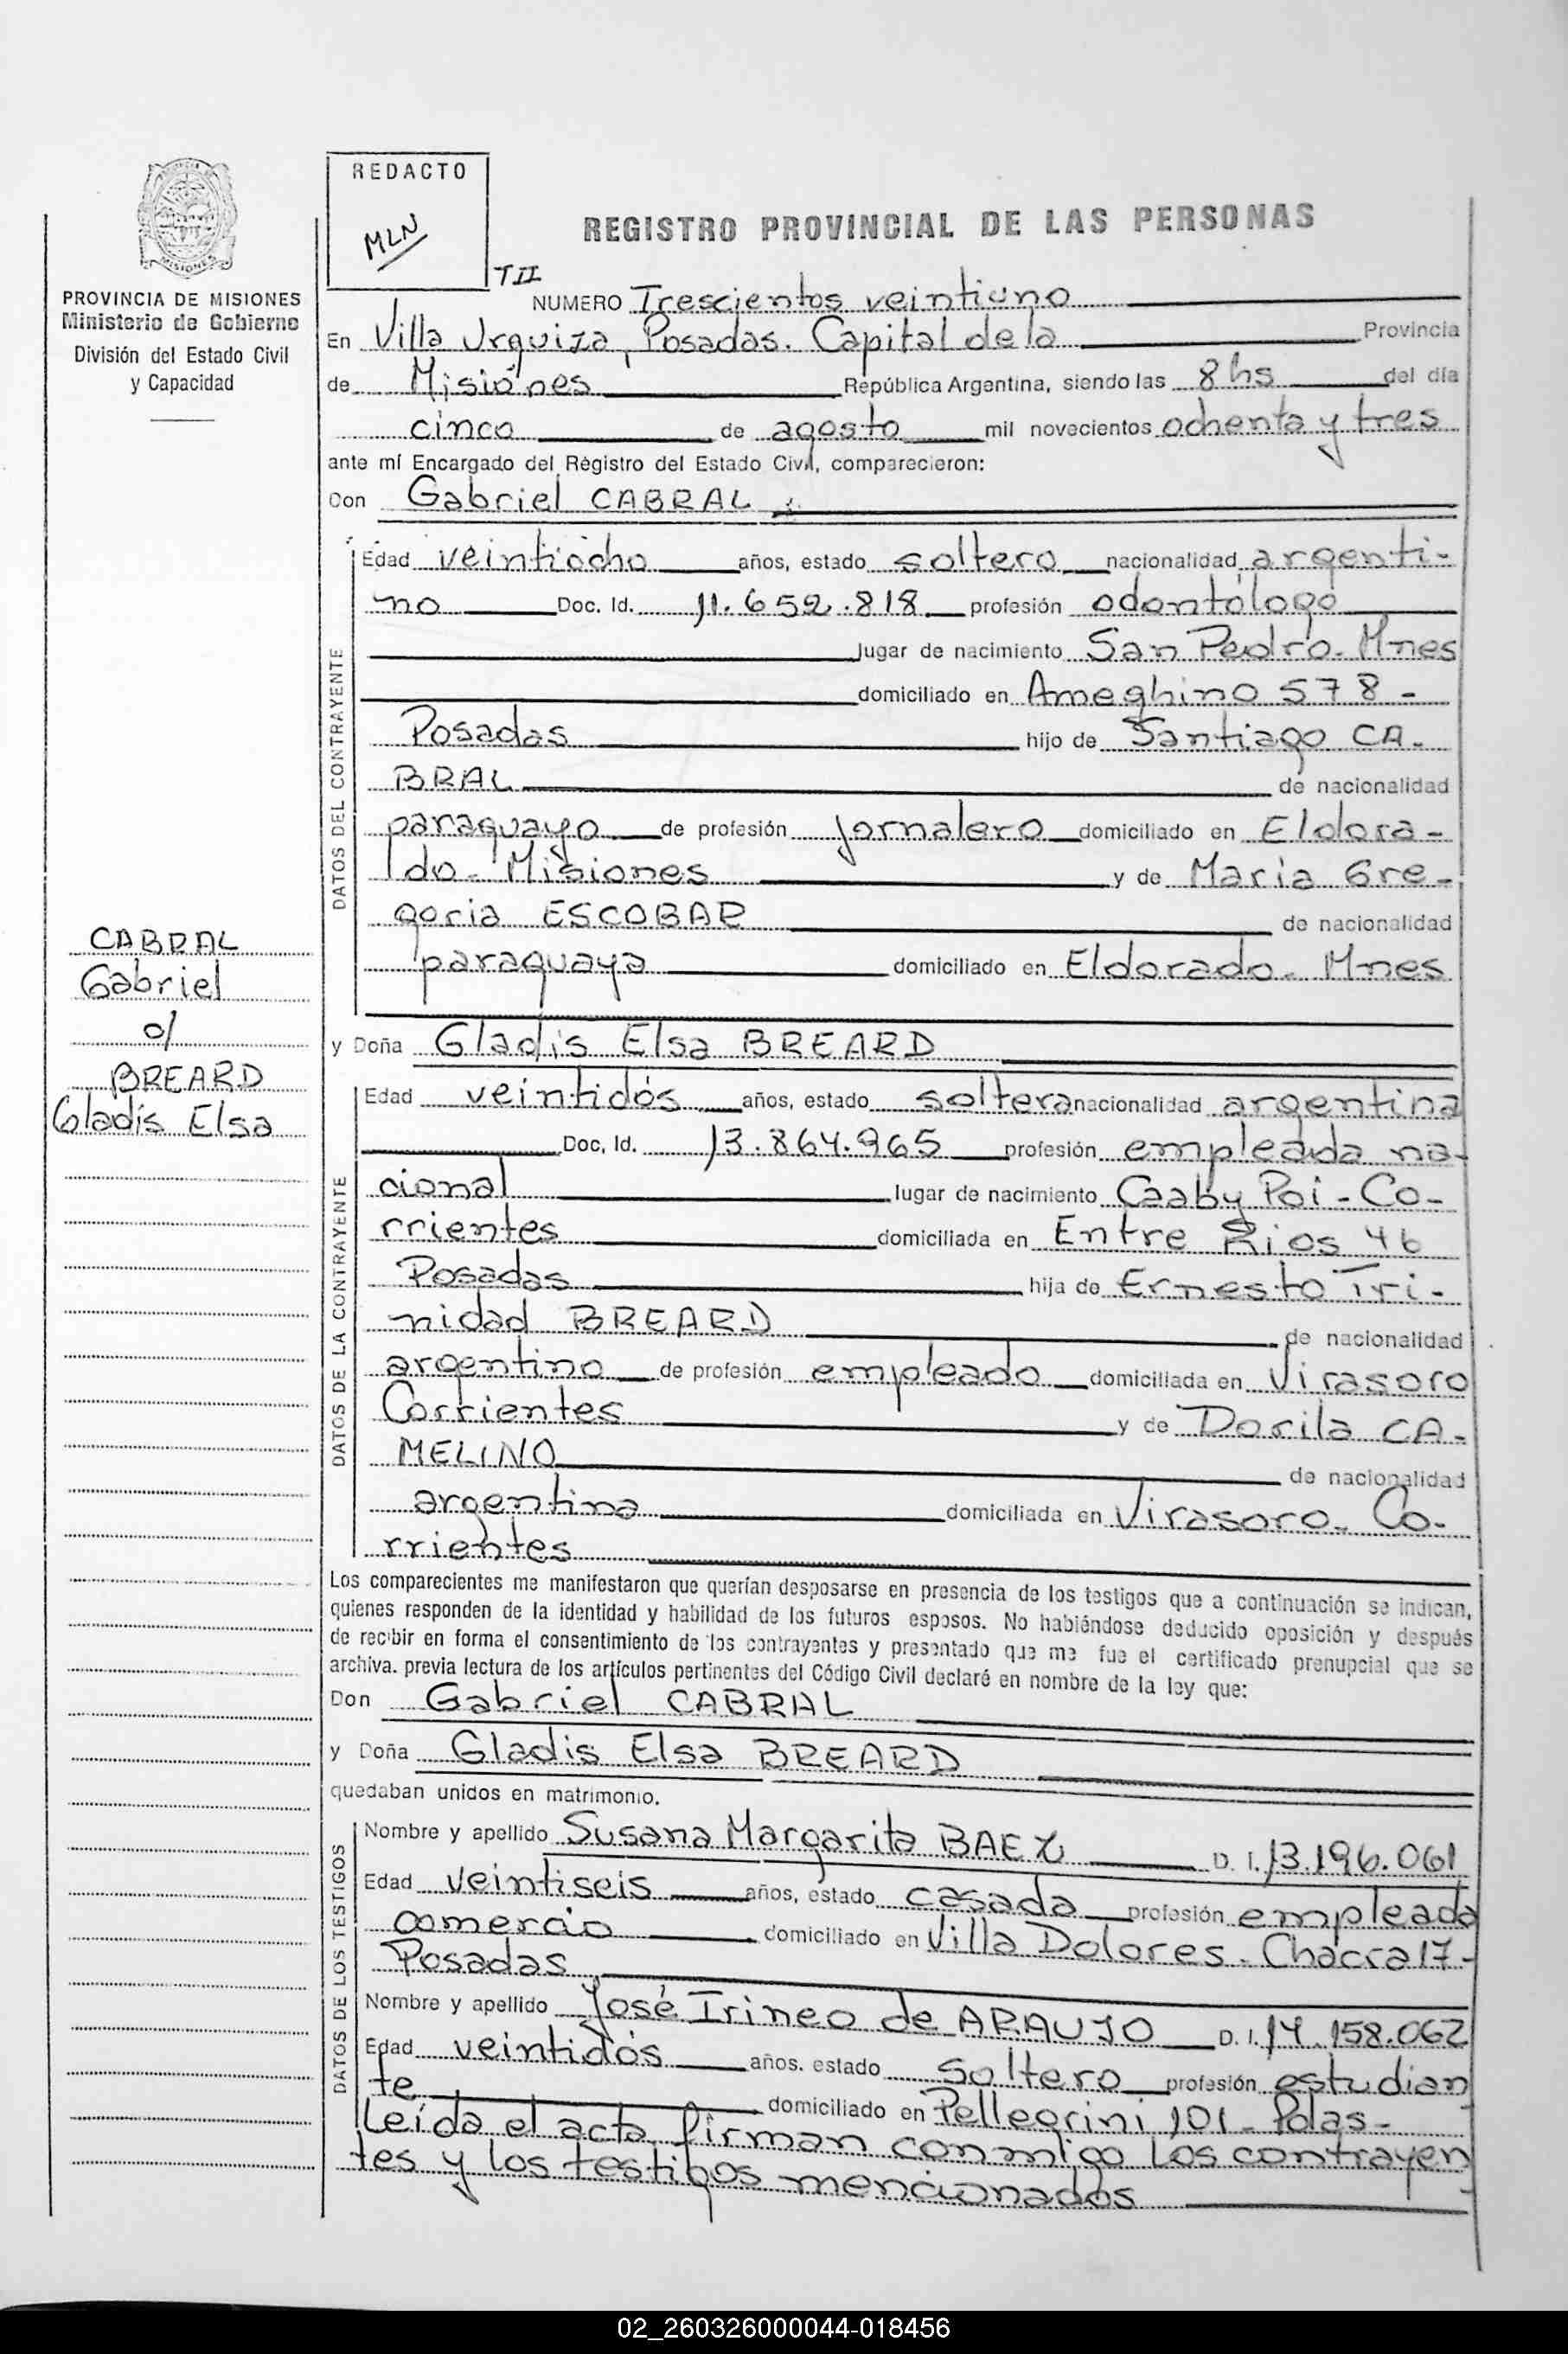 REDACTO
MLN
REGISTRO PROVINCIAL DE LAS PERSONAS
PROVINCIA DE MISIONES
Ministerio de Gobierno
División del Estado Civil
y Capacidad
T II
NUMERO Trescientos veintiuno
En Villa Urquiza, Posadas. Capital de la Provincia
de Misiones República Argentina, siendo las 8 hs del día
cinco de agosto mil novecientos ochenta y tres
ante mí Encargado del Registro del Estado Civil, comparecieron:
Don Gabriel CABRAL
DATOS DEL CONTRAYENTE
Edad veintiocho años, estado soltero nacionalidad argenti-
no Doc. Id. 11.652.818 profesión odontólogo
lugar de nacimiento San Pedro. Mnes
domiciliado en Ameghino 578 -
Posadas hijo de Santiago CA-
BRAL de nacionalidad
paraguayo de profesión jornalero domiciliado en Eldora-
do - Misiones y de Maria Gre-
goria ESCOBAR de nacionalidad
paraguaya domiciliado en Eldorado - Mnes
CABRAL
Gabriel
c/
BREARD
Gladis Elsa
y Doña Gladis Elsa BREARD
DATOS DE LA CONTRAYENTE
Edad veintidós años, estado soltera nacionalidad argentina
Doc, Id. 13.864.965 profesión empleada na-
cional lugar de nacimiento Caaby Poi - Co-
rrientes domiciliada en Entre Rios 46
Posadas hija de Ernesto Tri-
nidad BREARD de nacionalidad
argentino de profesión empleado domiciliada en Virasoro
Corrientes y de Dorila CA-
MELINO de nacionalidad
argentina domiciliada en Virasoro - Co-
rrientes
Los comparecientes me manifestaron que querían desposarse en presencia de los testigos que a continuación se indican,
quienes responden de la identidad y habilidad de los futuros esposos. No habiéndose deducido oposición y después
de recibir en forma el consentimiento de los contrayentes y presentado que me fue el certificado prenupcial que se
archiva. previa lectura de los artículos pertinentes del Código Civil declaré en nombre de la ley que:
Don Gabriel CABRAL
y Doña Gladis Elsa BREARD
quedaban unidos en matrimonio.
DATOS DE LOS TESTIGOS
Nombre y apellido Susana Margarita BAEZ D. I. 13.196.061
Edad veintiseis años, estado casada profesión empleada
comercio domiciliado en Villa Dolores - Chacra 17 -
Posadas
Nombre y apellido José Irineo de ARAUJO D. I. 14.158.062
Edad veintidós años. estado soltero profesión estudian
te domiciliado en Pellegrini 101 - Pdas -
Leída el acta, firman conmigo los contrayen
tes y los testigos mencionados
02_260326000044-018456